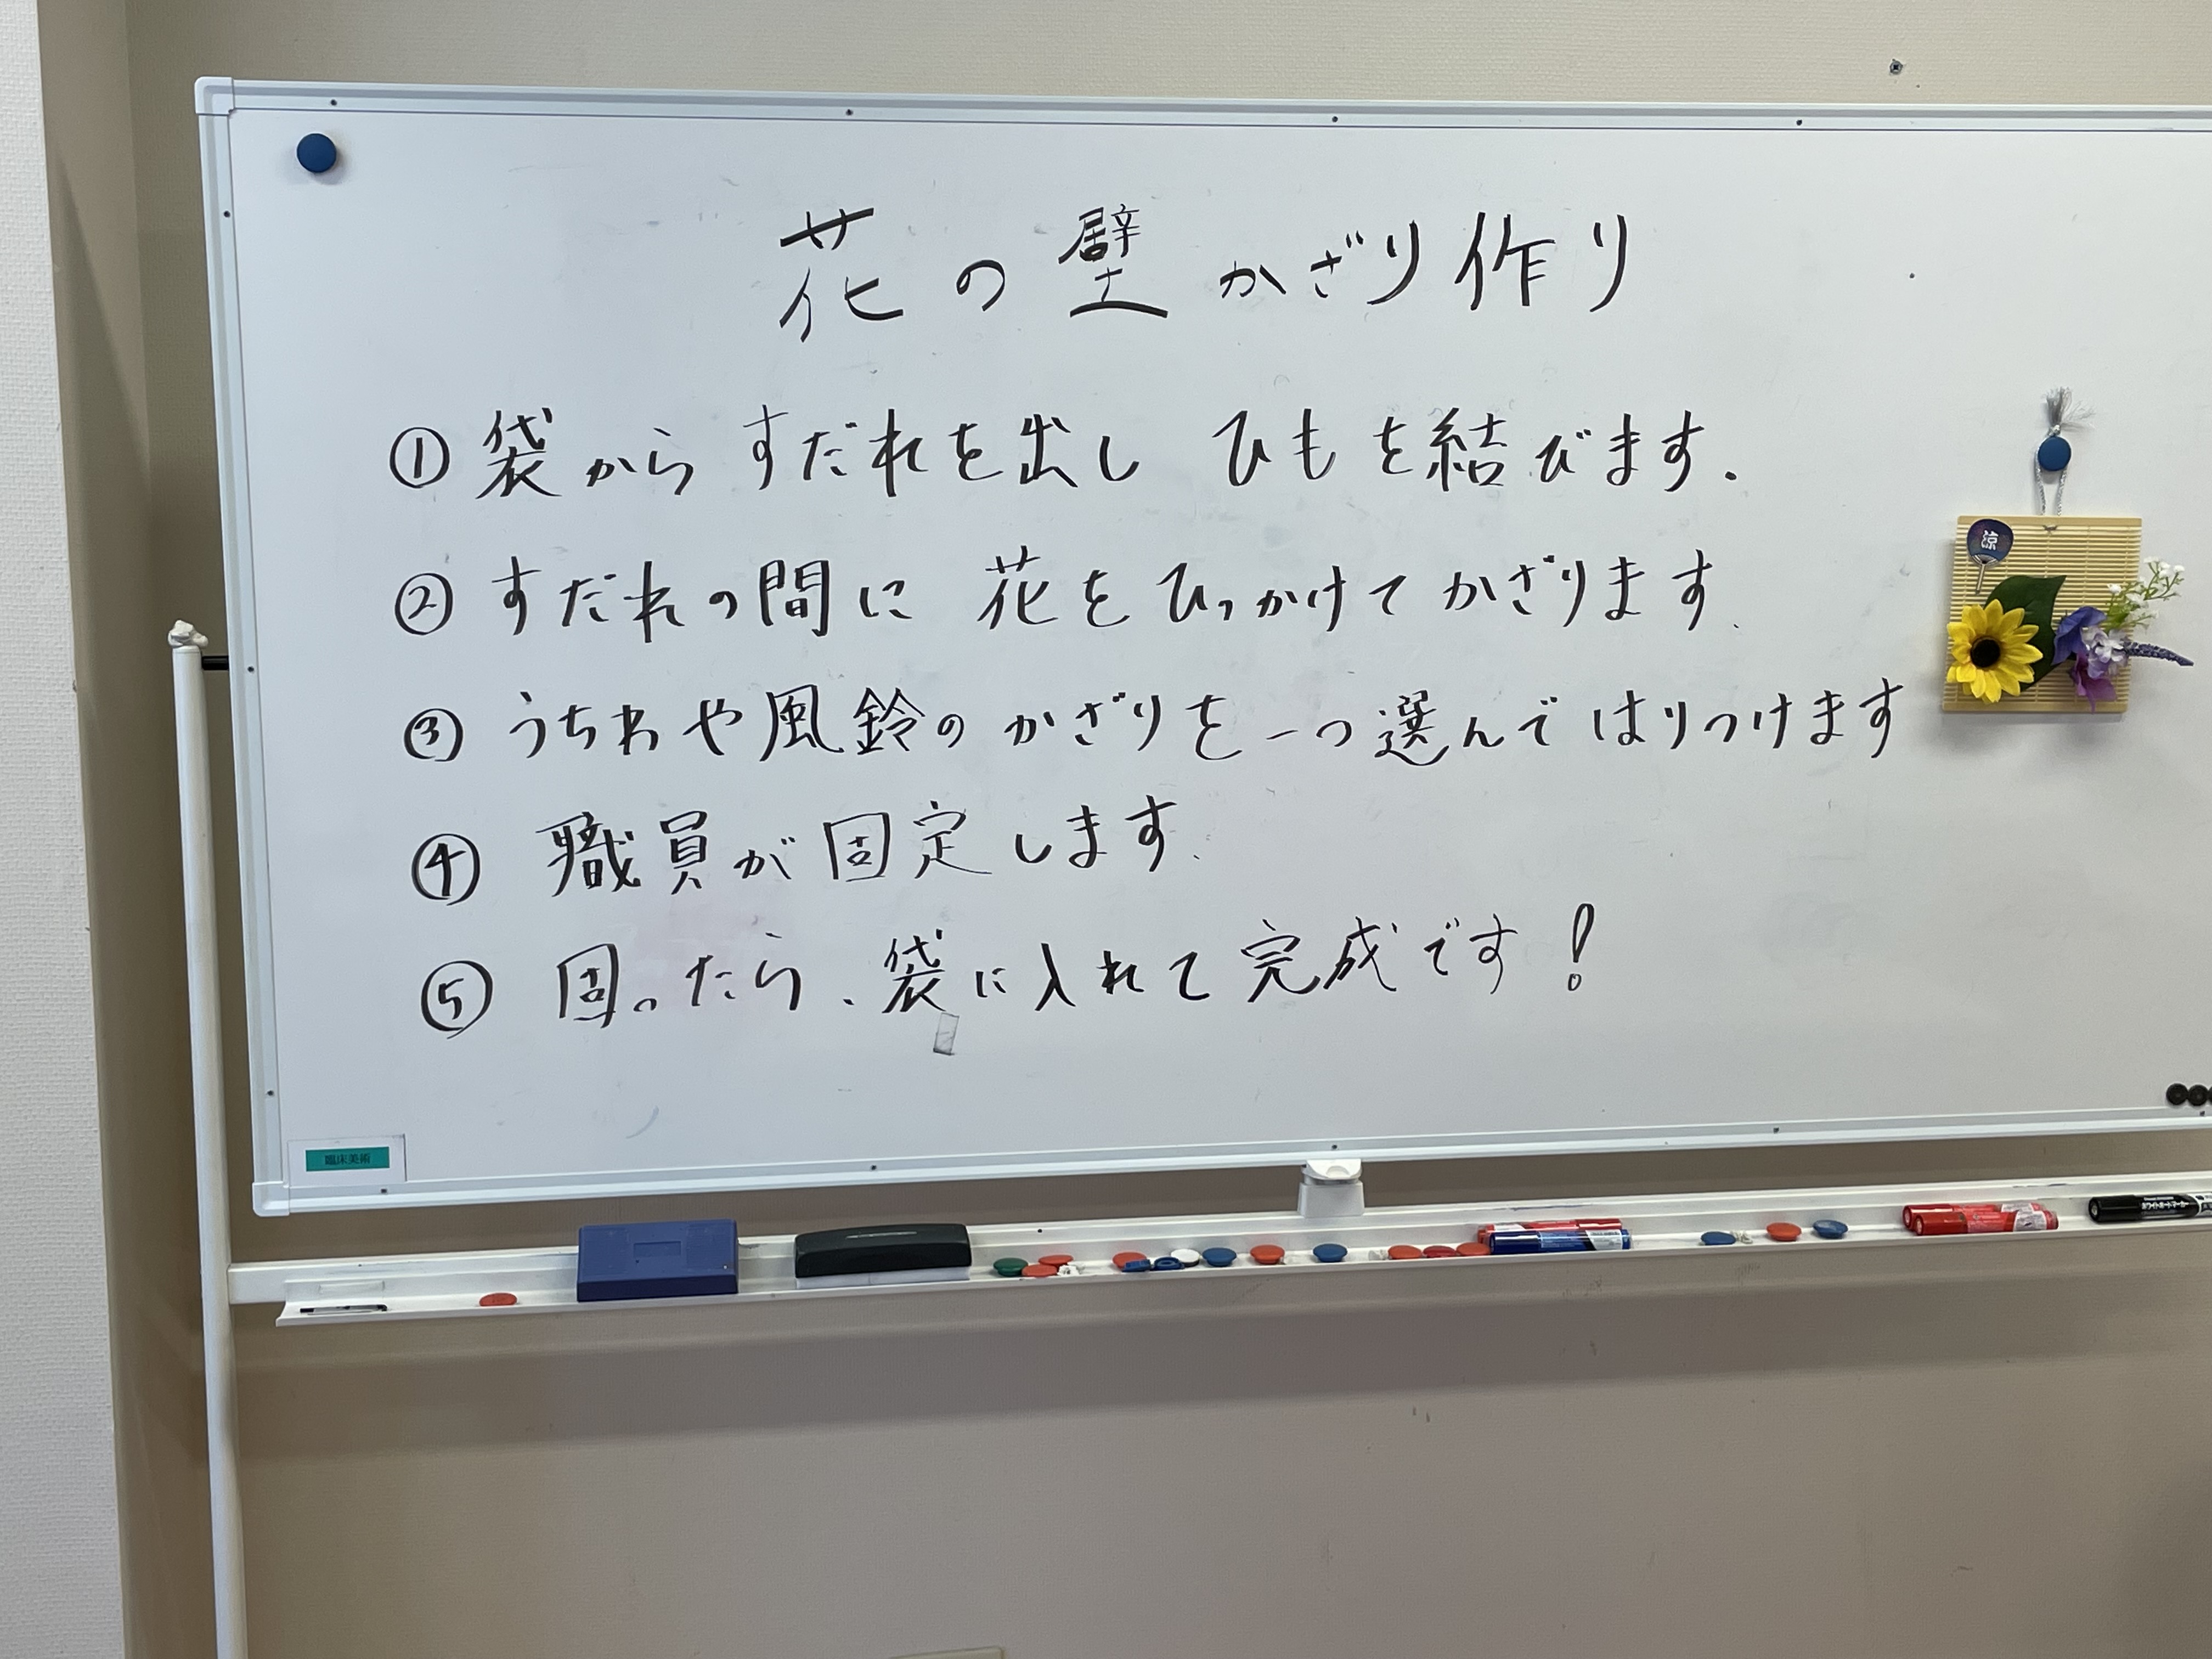 花の壁かざり作り
① 袋から すだれを出し ひもを結びます.
② すだれの間に 花を ひっかけて かざります.
涼
③ うちわや風鈴の かざりを 一つ選んで はりつけます
④ 職員が固定します.
⑤ 固ったら、袋に入れて完成です!
臨床美術
ホワイトボードマーカー